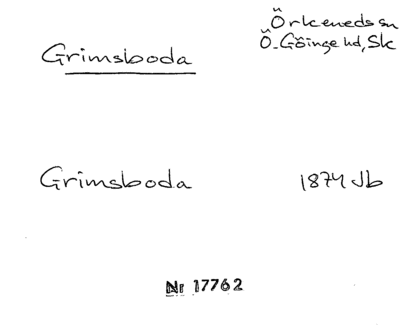 Grimsboda
Örkeneds sn
Ö. Göinge hd, Sk
Grimsboda
1874 Jb
Nr 17762